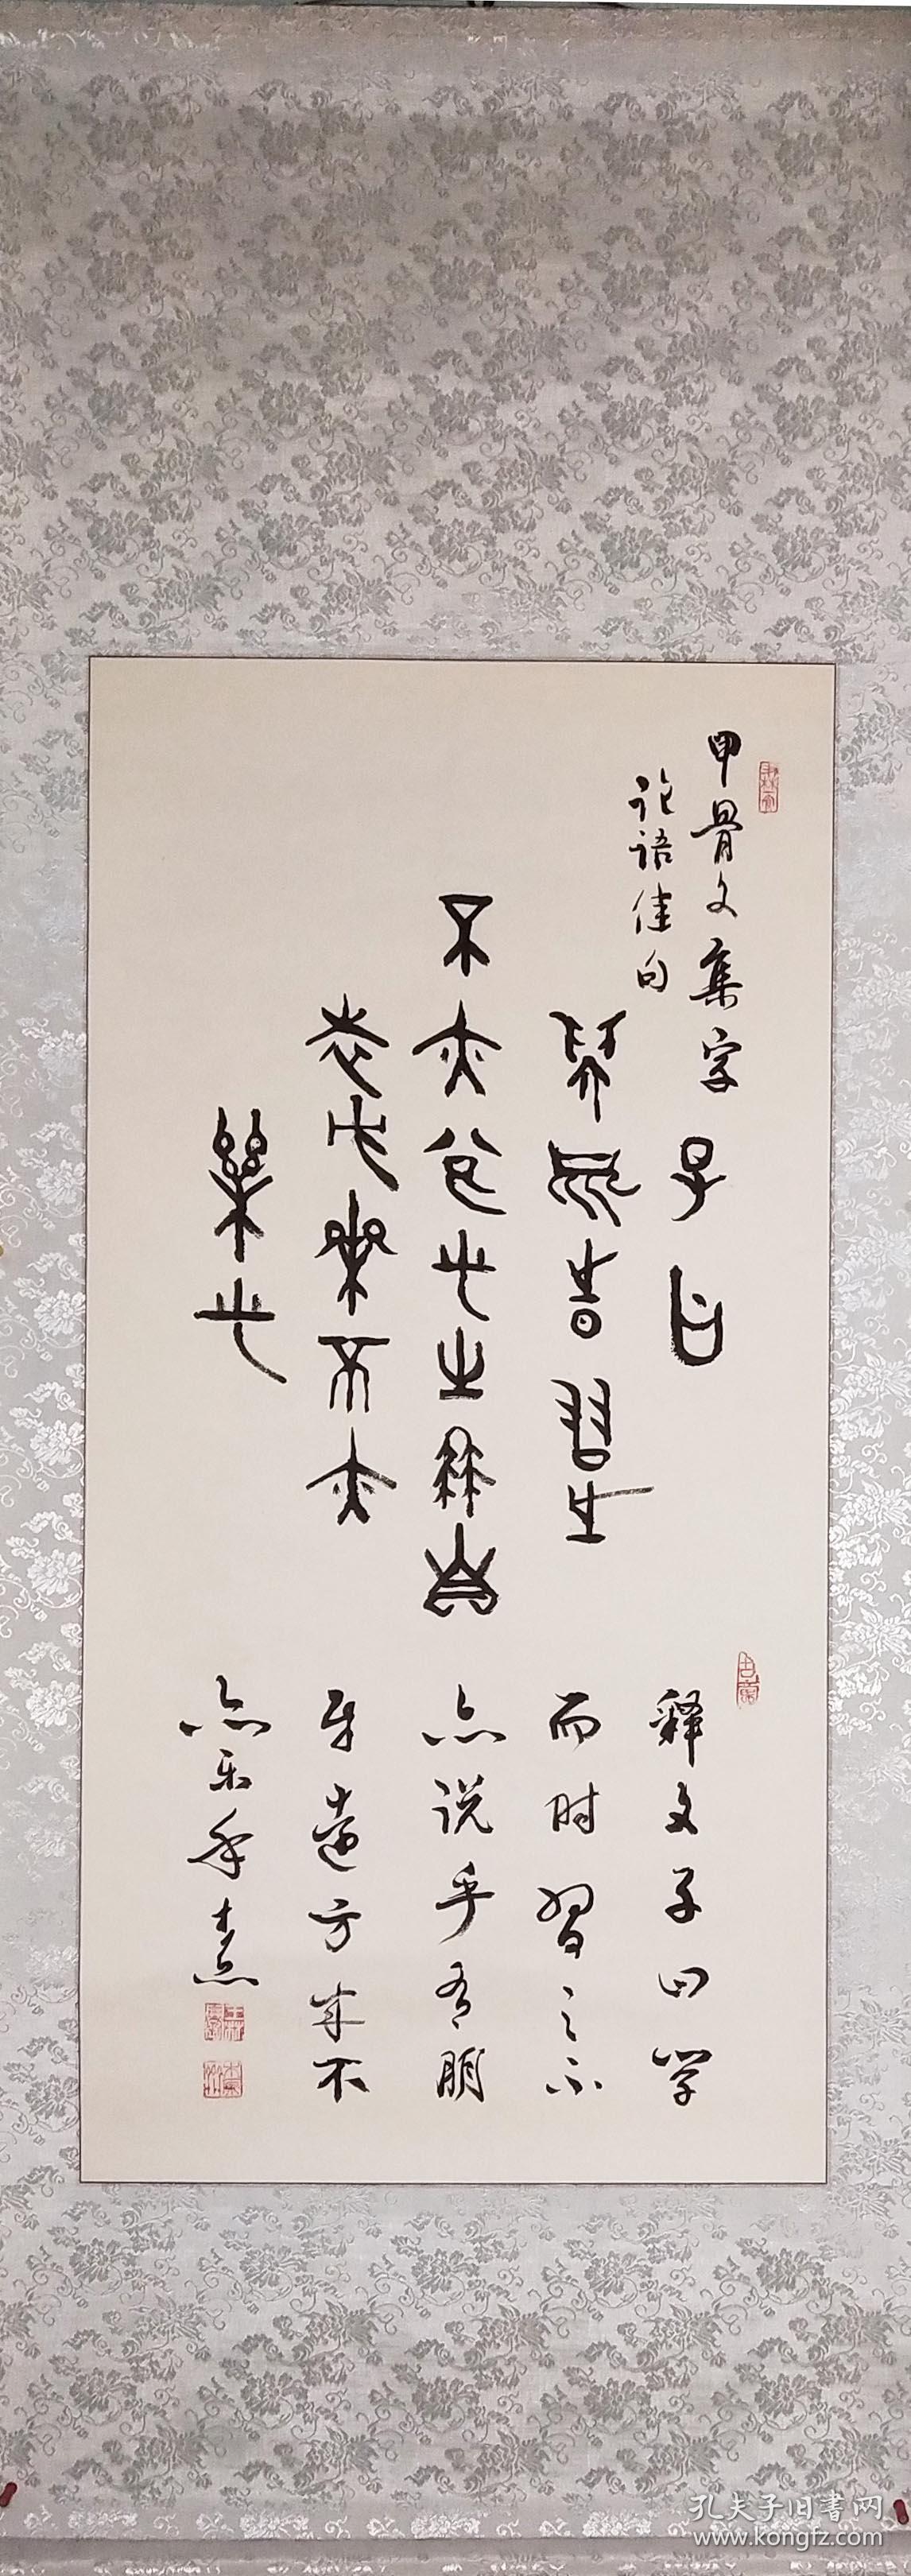 甲骨文集字
论语佳句
子曰
學而時習之
不亦說乎有朋自
遠方來不亦
樂乎
释文子曰学
而时習之不
亦说乎有朋
自遠方来不
亦乐乎
孔夫子旧書网
www.kongfz.com